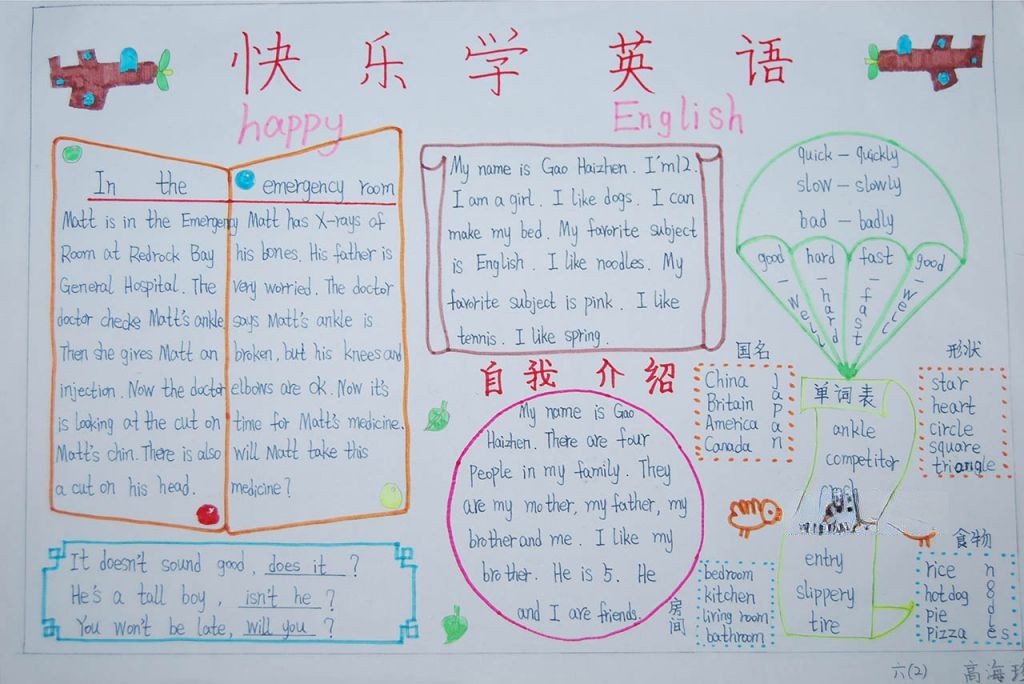 快乐学英语
happy English
In the emergency room
Matt is in the Emergency
Room at Redrock Bay
General Hospital. The
doctor checks Matt's ankle.
Then she gives Matt an
injection. Now the doctor
is looking at the cut on
Matt's chin. There is also
a cut on his head.
Matt has X-rays of
his bones. His father is
very worried. The doctor
says Matt's ankle is
broken, but his knees and
elbows are ok. Now it's
time for Matt's medicine.
Will Matt take this
medicine?
It doesn't sound good, does it ?
He's a tall boy, isn't he ?
You won't be late, will you ?
My name is Gao Haizhen. I'm12.
I am a girl. I like dogs. I can
make my bed. My favorite subject
is English. I like noodles. My
favorite subject is pink. I like
tennis. I like spring.
自我介绍
My name is Gao
Haizhen. There are four
People in my family. They
are my mother, my father, my
brother and me. I like my
brother. He is 5. He
and I are friends.
quick - quickly
slow - slowly
bad - badly
good - well
hard - hard
fast - fast
good - well
国名
China
Britain
America
Canada
Japan
单词表
ankle
competitor
entry
slippery
tire
形状
star
heart
circle
square
triangle
房间
bedroom
kitchen
living room
bathroom
食物
rice
hotdog
pie
pizza
六(2)
高海珍